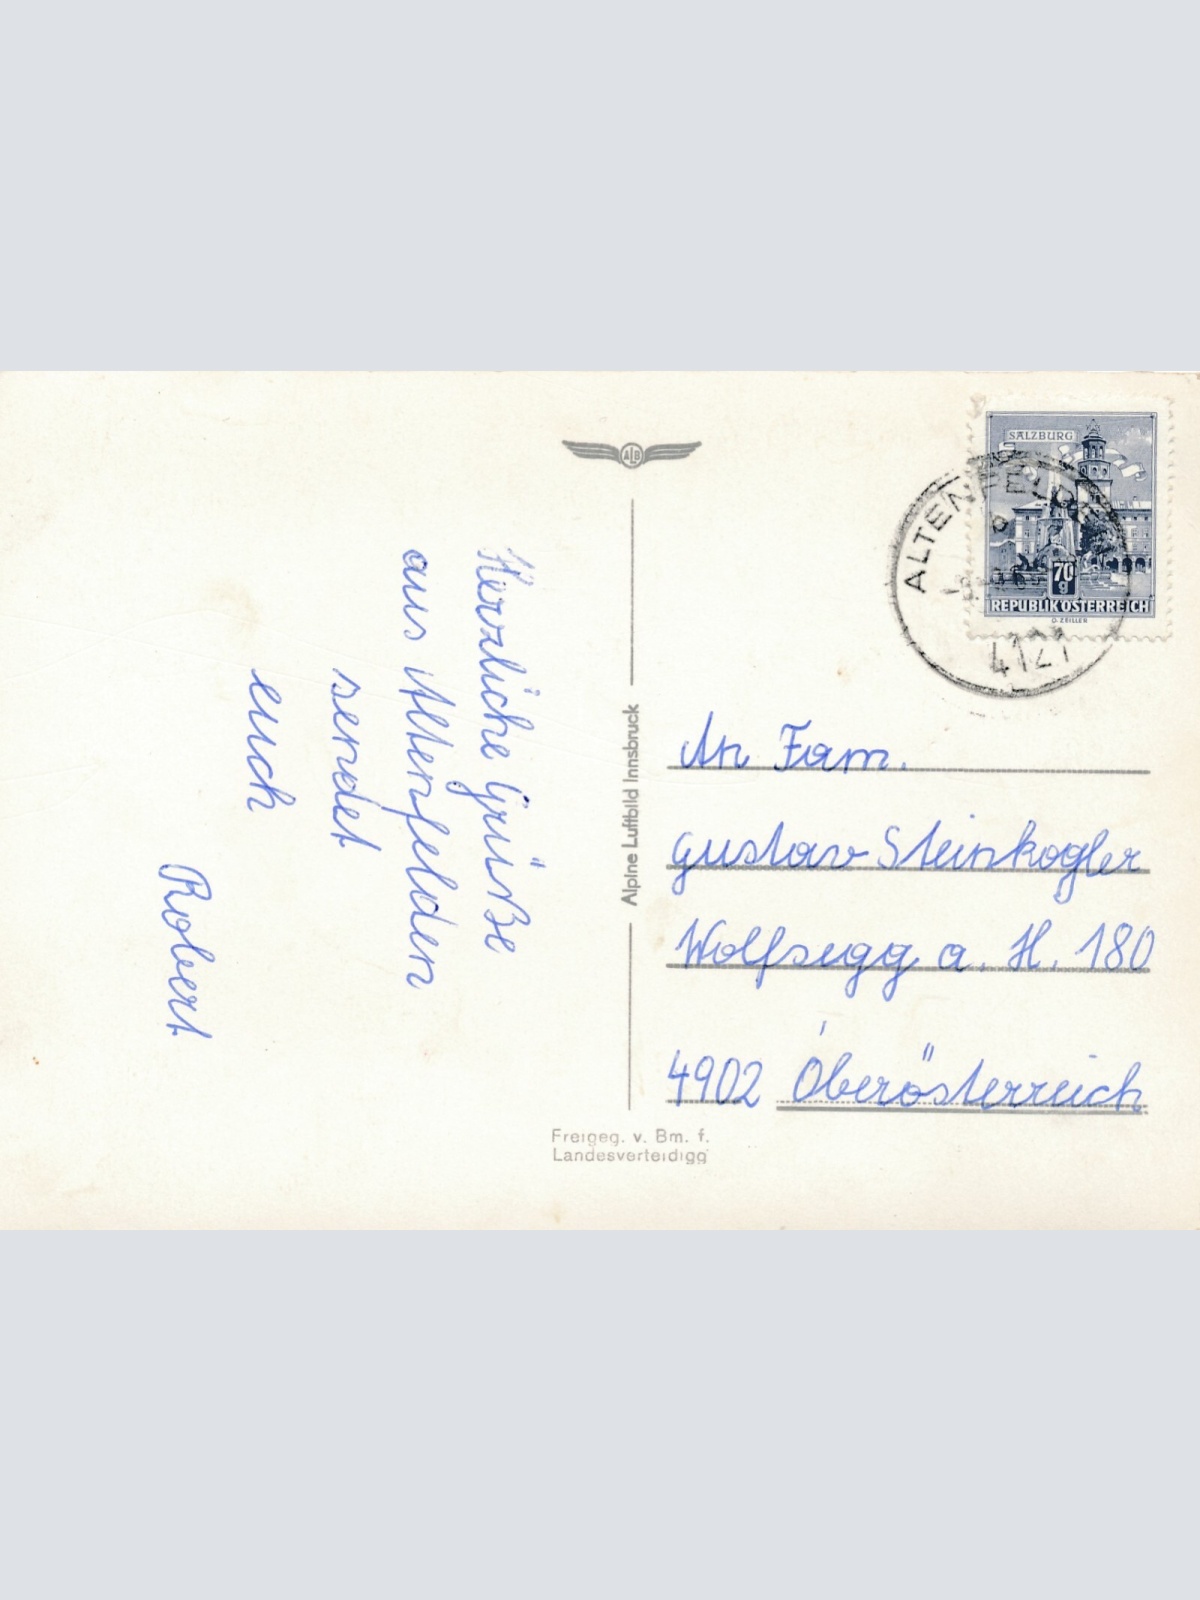 Herzliche Grüße
aus Altenfelden
sendet
euch
Robert
ALB
Alpine Luftbild Innsbruck
Freigeg. v. Bm. f.
Landesverteidigg
SALZBURG
70
g
REPUBLIK ÖSTERREICH
D. ZEILLER
ALTENFELDEN
4121
An Fam.
Gustav Steinkogler
Wolfsegg a. H. 180
4902 Oberösterreich